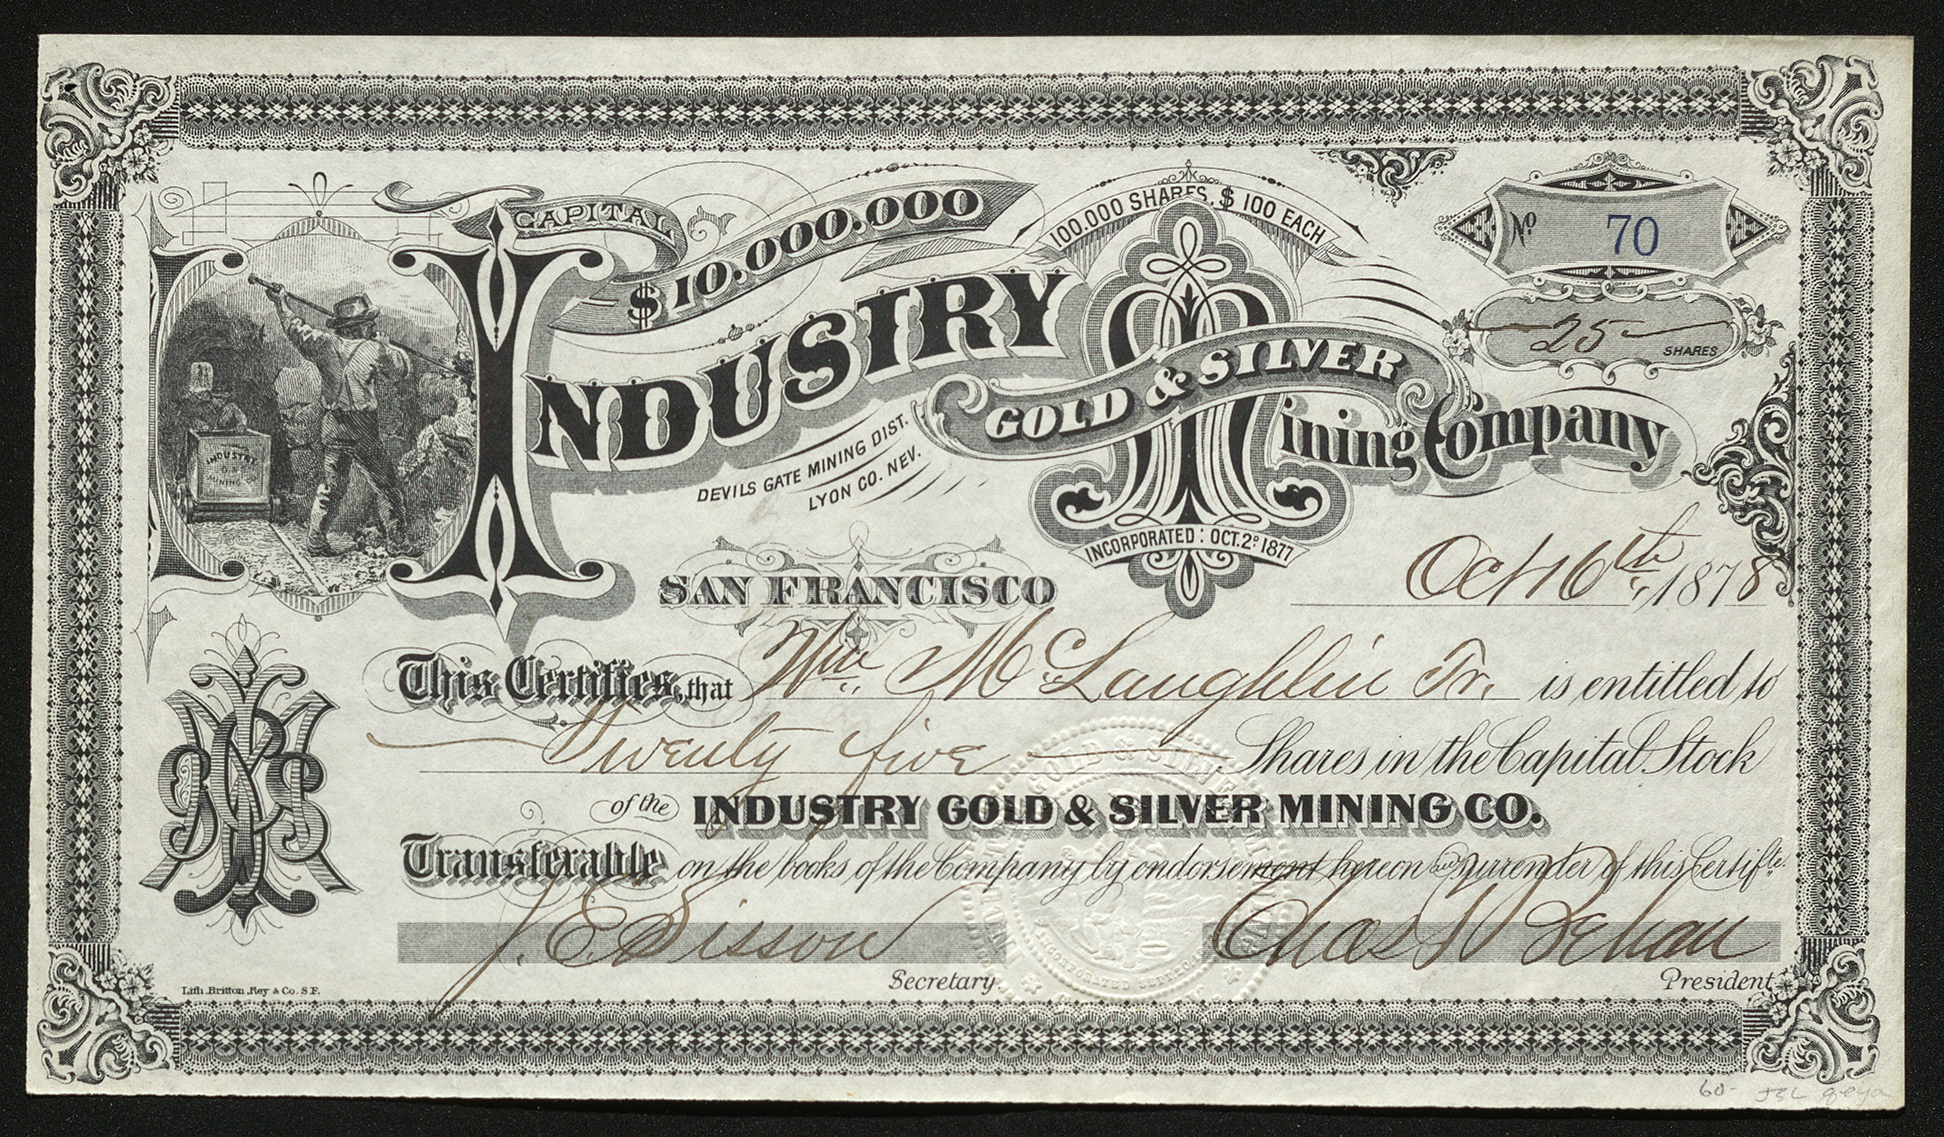 CAPITAL
$10.000.000
100.000 SHARES, $ 100 EACH
No 70
25 SHARES
INDUSTRY
GOLD & SILVER
Mining Company
DEVILS GATE MINING DIST.
LYON CO. NEV.
INDUSTRY
G. & S.
MINING
INCORPORATED: OCT. 2D 1877
SAN FRANCISCO
Oct 16th, 1878
This Certifies, that Wm. McLaughlin Tr. is entitled to
Twenty five Shares in the Capital Stock
of the INDUSTRY GOLD & SILVER MINING CO.
Transferable on the books of the Company by endorsement hereon and surrender of this Certifte.
J. E. Sisson
Chas H Behan
Secretary
President
Lith. Britton, Rey & Co. S F.
60-